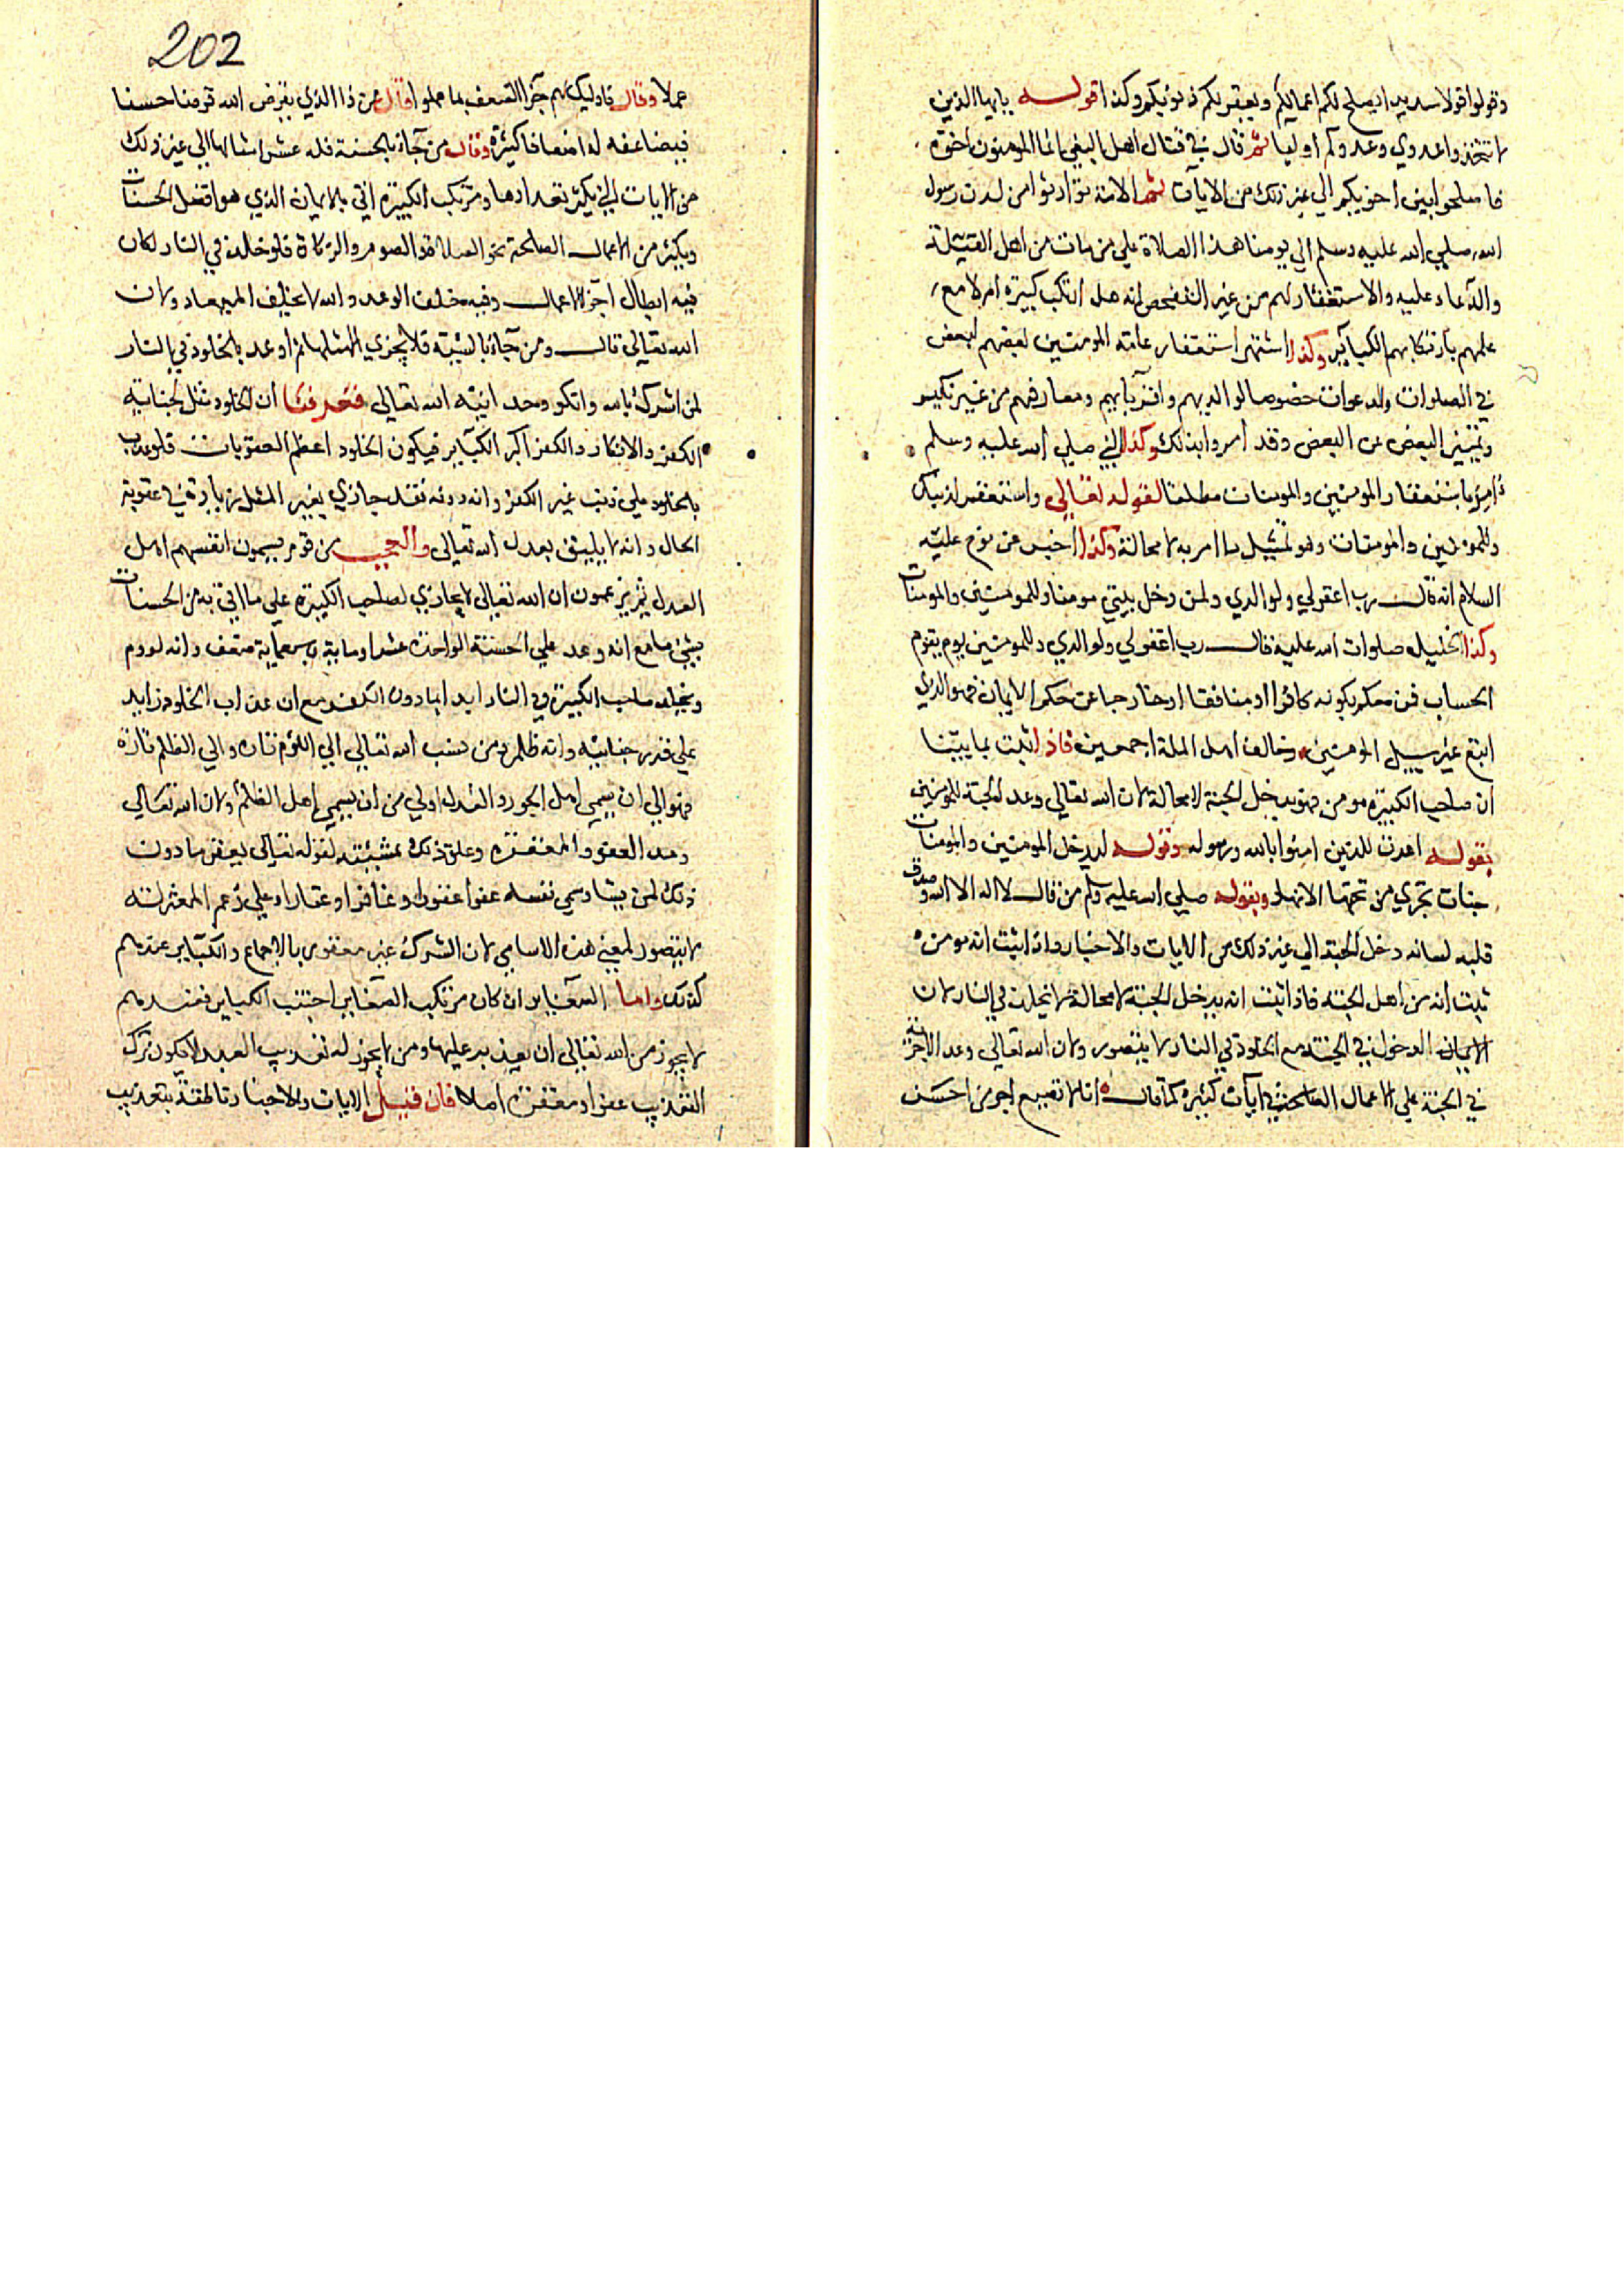 وقولوا قولا سديدا يصلح لكم اعمالكم ويغفر لكم ذنوبكم وكذا قوله ياايها الذين
لا تتخذوا عدوي وعدوكم اوليا ثم قال في قتال اهل البغي انما المومنون اخوة
فاصلحوا بين اخويكم الي غير ذلك من الايات ثم الامة توارثوا من لدن رسول
الله صلي الله عليه وسلم الي يومنا هذا الصلاة علي من مات من اهل القبلة
والدعاء عليه والاستغفار لهم من غير التفحص انه هل ارتكب كبيرة ام لا مع
علمهم بارتكابهم الكباير وكذا اشتهر استغفار عامة المومنين بعضهم لبعض
في الصلوات والدعوات خصوصا لوالديهم واقربآيهم ومعارفهم من غير نكير
وتمييز البعض من البعض وقد امروا بذلك وكذا النبي صلي الله عليه وسلم
امر باستغفار المومنين والمومنات مطلقا لقوله تعالي واستغفر لذنبك
وللمومنين والمومنات وهو تمثيل ما امر به لا محالة وكذا اخبر عن نوح عليه
السلام انه قال رب اغفرلي ولوالدي ولمن دخل بيتي مومنا وللمومنين والمومنات
وكذا الخليل صلوات الله عليه قال رب اغفرلي ولوالدي وللمومنين يوم يقوم
الحساب فمن حكم بكونه كافرا او منافقا او خارجا عن حكم الايمان فهو الذي
اتبع غير سبيل المومنين وخالف اهل الملة اجمعين فاذا ثبت بما بينا
ان صاحب الكبيرة مومن فهو يدخل الجنة لا محالة لان الله تعالي وعد الجنة للمومنين
بقوله اعدت للذين امنوا بالله ورسوله وقوله ليدخل المومنين والمومنات
جنات تجري من تحتها الانهار وبقوله صلي الله عليه وسلم من قال لا اله الا الله وصدق
قلبه لسانه دخل الجنة الي غير ذلك من الايات والاخبار واذا ثبت انه مومن
ثبت انه من اهل الجنة فاذا ثبت انه يدخل الجنة لا محالة لا يخلد في النار لان
الدخول في الجنة مع الخلود في النار لا يتصور ولان الله تعالي وعد الاجزية
في الجنة علي الاعمال الصالحة في آيات كثيرة كما قال انا لا نضيع اجر من احسن
202
عملا وقال فاوليك لهم جزا الضعف بما عملوا قال من ذا الذي يقرض الله قرضا حسنا
فيضاعفه له اضعافا كثيرة وقال من جآء بالحسنة فله عشر امثالها الي غير ذلك
من الايات التي يكثر تعدادها ومرتكب الكبيرة اتي بالايمان الذي هو افضل الحسنات
وبكثير من الاعمال الصالحة نحو الصلاة والصوم والزكاة فلو خلد في النار لكان
فيه ابطال اجزا الاعمال وفيه خلف الوعد والله لا يخلف الميعاد ولان
الله تعالي قال ومن جآء بالسيئة فلا يجزي الا مثلها ثم اوعد بالخلود في النار
لمن اشرك بالله وانكر وحدانيته الله تعالي فعرفنا ان الخلود مثل لجناية
الكفر والانكار والكفر اكبر الكباير فيكون الخلود اعظم العقوبات فلو عذب
بالخلود علي ذنب غير الكفر وانه دونه فقد جازي بغير المثل بزيادة في عقوبة
الحال وانه لا يليق بعدل الله تعالي والعجب من قوم يسمون انفسهم اهل
العدل ثم يزعمون ان الله تعالي لا يجازي لصاحب الكبيرة علي ما اتي به من الحسنات
بشيء ما مع انه وعد علي الحسنة الواحدة عشرا وماية وسبعماية ضعف وانه لووم
ويخلد صاحب الكبيرة في النار ابد ابادون الكفر مع ان عذاب الخلود زايد
علي قدر جنايته وانه ظلم ومن نسب الله تعالي الي اللؤم تارة والي الظلم تارة
فهو الي ان يسمي اهل الجور والعدل اولي من ان يسمي اهل الظلم ولان الله تعالي
وعد العفو والمغفرة وعلق ذلك بمشيئته لقوله تعالي يغفر ما دون
ذلك لمن يشا وسمي نفسه عفوا غفورا وغافرا وغفارا وعلي زعم المعتزلة
لا يتصور لمعني هذه الاسامي لان الشرك غير مغفور بالاجماع والكباير عندهم
كذلك واما الصغاير ان كان مرتكب الصغاير اجتنب الكباير فعندهم
لا يجوز من الله تعالي ان يعذبه عليها ومن لا يجوز له تعذيب العبد لا يكون ترك
التعذيب عفوا ومغفرة اصلا فان قيل الايات والاخبار ناطقة بتعذيب